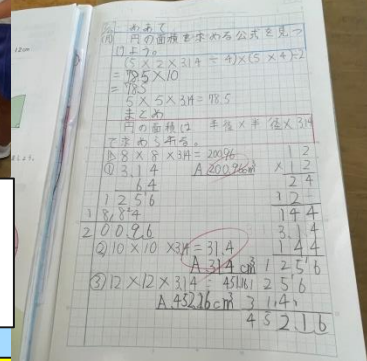 めあて
円の面積を求める公式を見つ
けよう。
(5×2×3.14÷4)×(5×4)÷2
=7.85×10
=78.5
5×5×3.14=78.5
まとめ
円の面積は 半径×半径×3.14
で求められる。
8×8×3.14=200.96
① 3.14 A 200.96cm²
64
1256
1884
200.96
12
×12
24
12
144
②10×10×3.14=31.4
A 314cm²
③12×12×3.14=452.16
A 452.16cm²
3.14
144
1256
1256
314
452.16